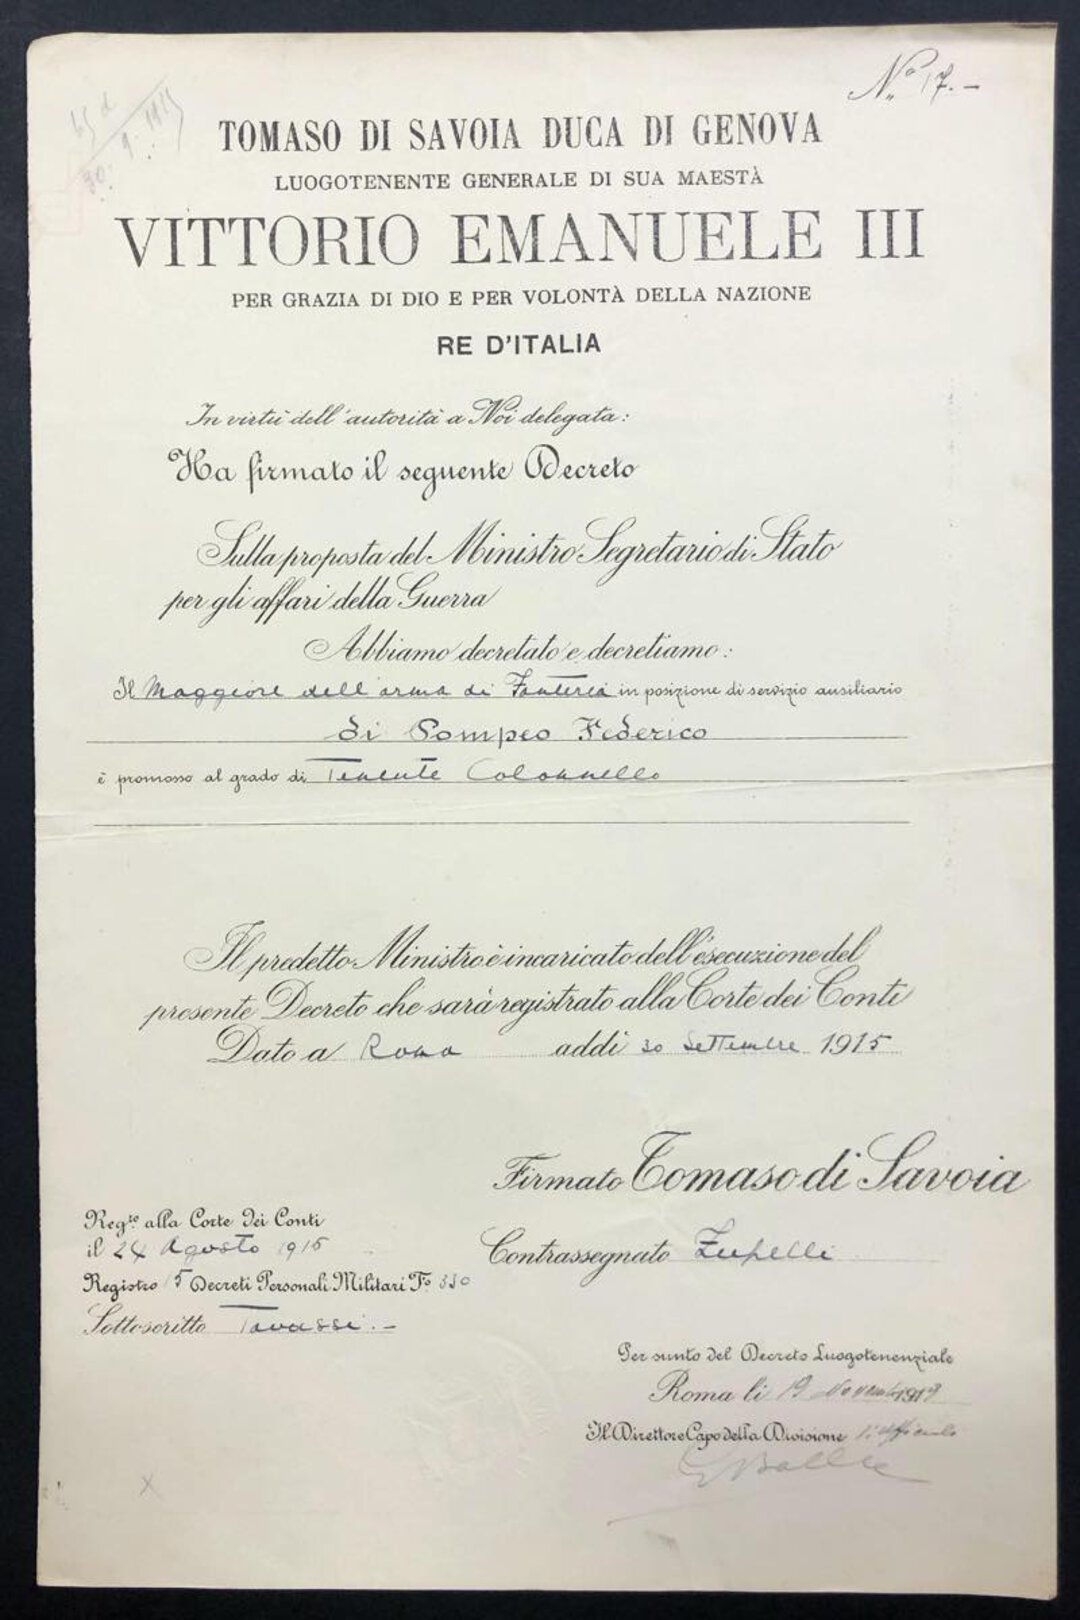 N.° 17. –
30. 9. 1915
TOMASO DI SAVOIA DUCA DI GENOVA
LUOGOTENENTE GENERALE DI SUA MAESTÀ
VITTORIO EMANUELE III
PER GRAZIA DI DIO E PER VOLONTÀ DELLA NAZIONE
RE D'ITALIA
In virtù dell'autorità a Noi delegata:
Ha firmato il seguente Decreto
Sulla proposta del Ministro Segretario di Stato
per gli affari della Guerra
Abbiamo decretato e decretiamo:
Il Maggiore dell'arma di Fanteria in posizione di servizio ausiliario
di Pompeo Federico
è promosso al grado di Tenente Colonnello
Il predetto Ministro è incaricato dell'esecuzione del
presente Decreto che sarà registrato alla Corte dei Conti
Dato a Roma addì 30 Settembre 1915
Firmato Tomaso di Savoia
Contrassegnato Zupelli
Reg.to alla Corte dei Conti
il 24 Agosto 1916
Registro 15 Decreti Personali Militari F.° 330
Sottoscritto Tavassi. –
Per sunto del Decreto Luogotenenziale
Roma lì 19 Novembre 1919
Il Direttore Capo della Divisione